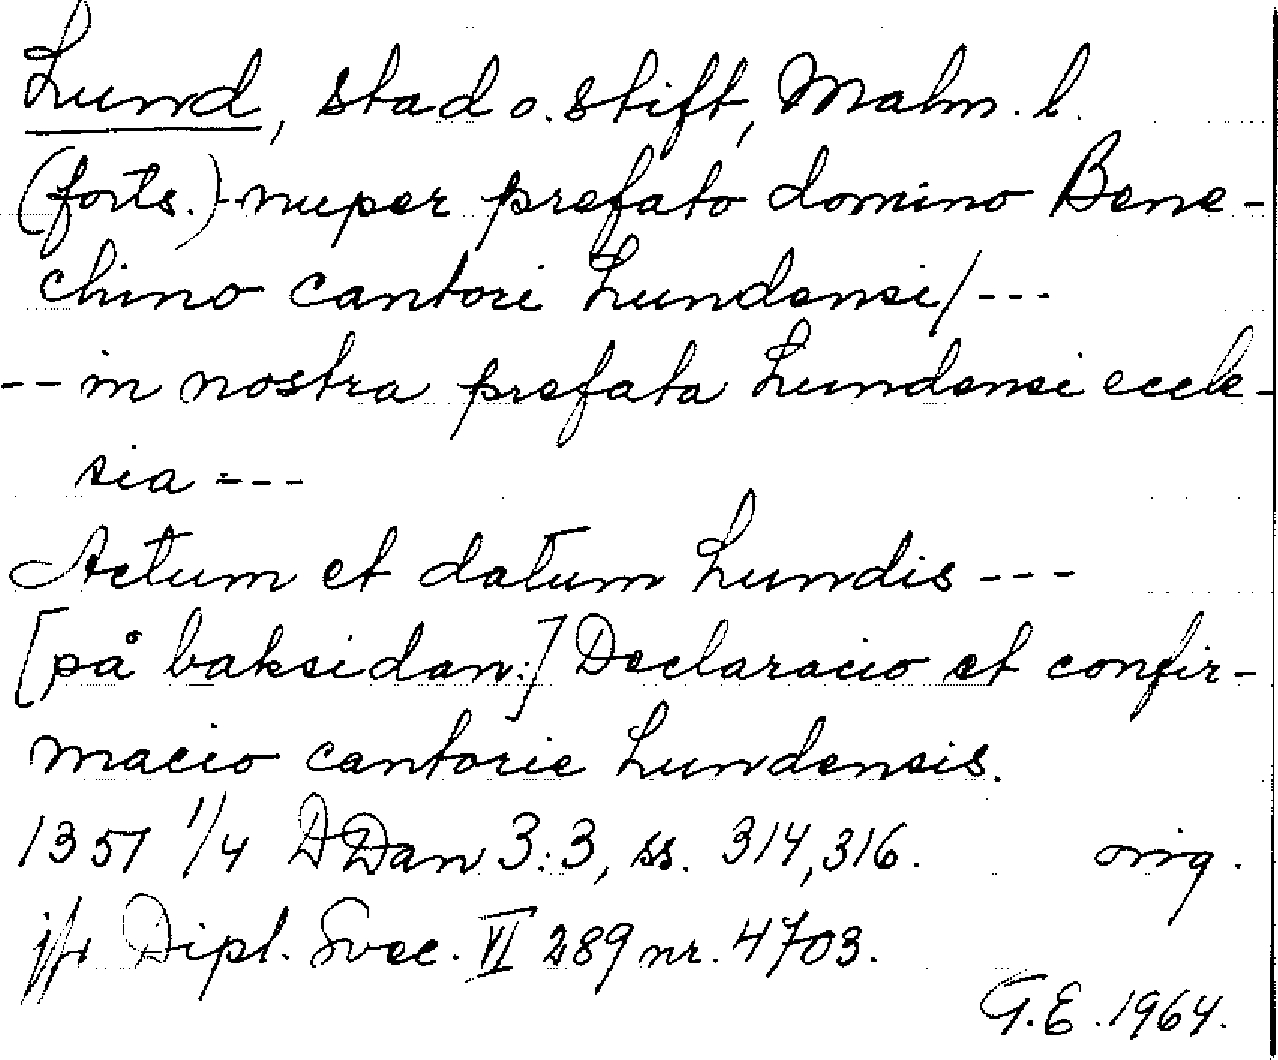 Lund, stad o. stift, Malm. l.
(forts.) nuper prefato domino Bene-
chino cantori Lundensi/---
-- in nostra prefata Lundensi eccle-
sia ---
Actum et datum Lundis ---
[på baksidan:] Declaracio et confir-
macio cantorie Lundensis.
1351 1/4 DDan 3:3, ss. 314, 316. orig.
jfr Dipl. Svec. VI 289 nr. 4703.
G.E. 1964.